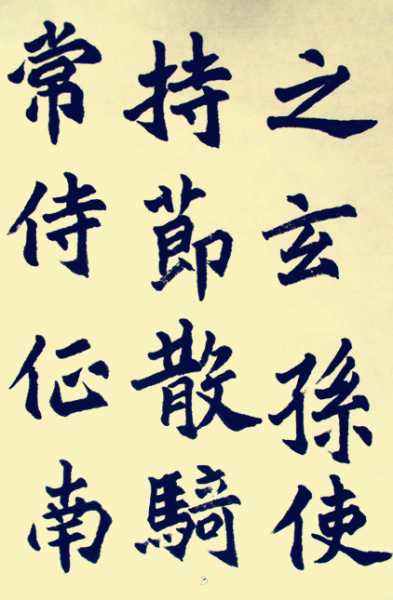 之玄孫使
持節散騎
常侍征南